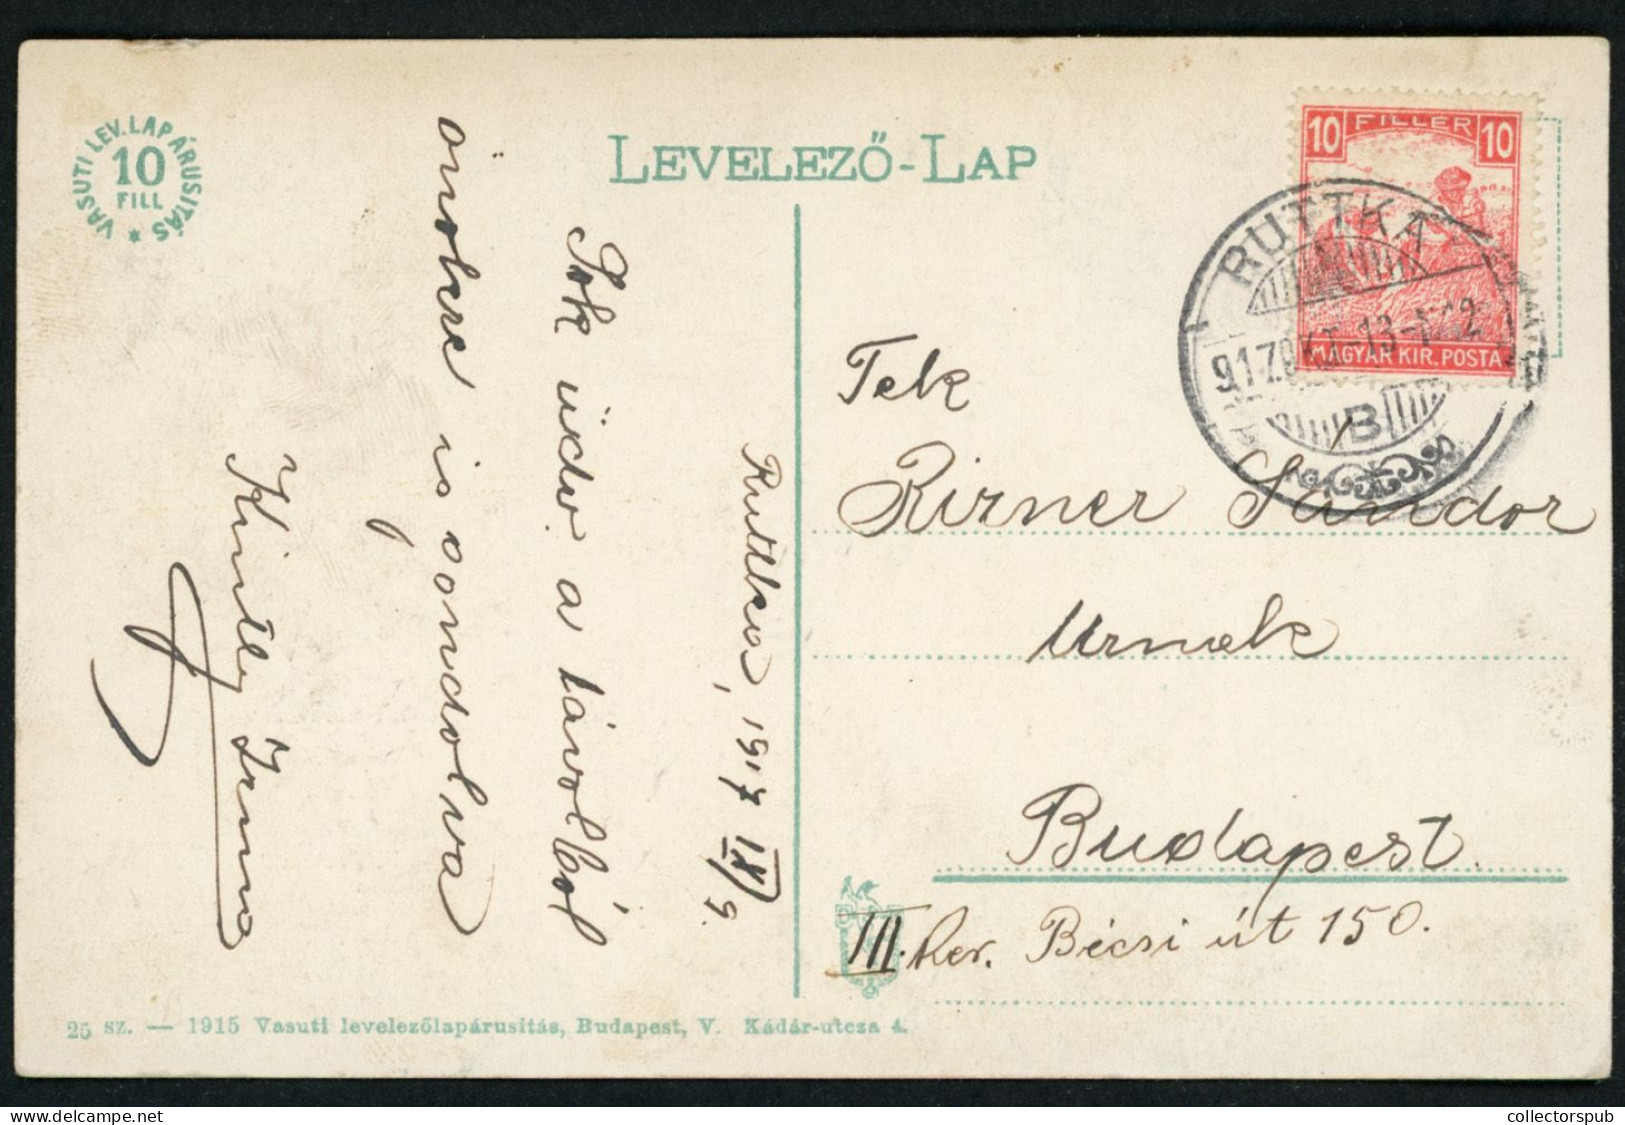 VASUTI LEV.LAPÁRUSITÁS
10
FILL
LEVELEZŐ-LAP
10 FILLER 10
MAGYAR KIR. POSTA
RUTTKA
B
Ruttka, 1917 IX/9.
Sok üdv. a távolból
önökre is gondolva
Irma
Tek
Rizner Sándor
Urnak
Budapest.
III. ker. Bécsi út 150.
25 SZ. — 1915 Vasuti levelezőlapárusitás, Budapest, V. Kádár-utcza 4.
collectorspub